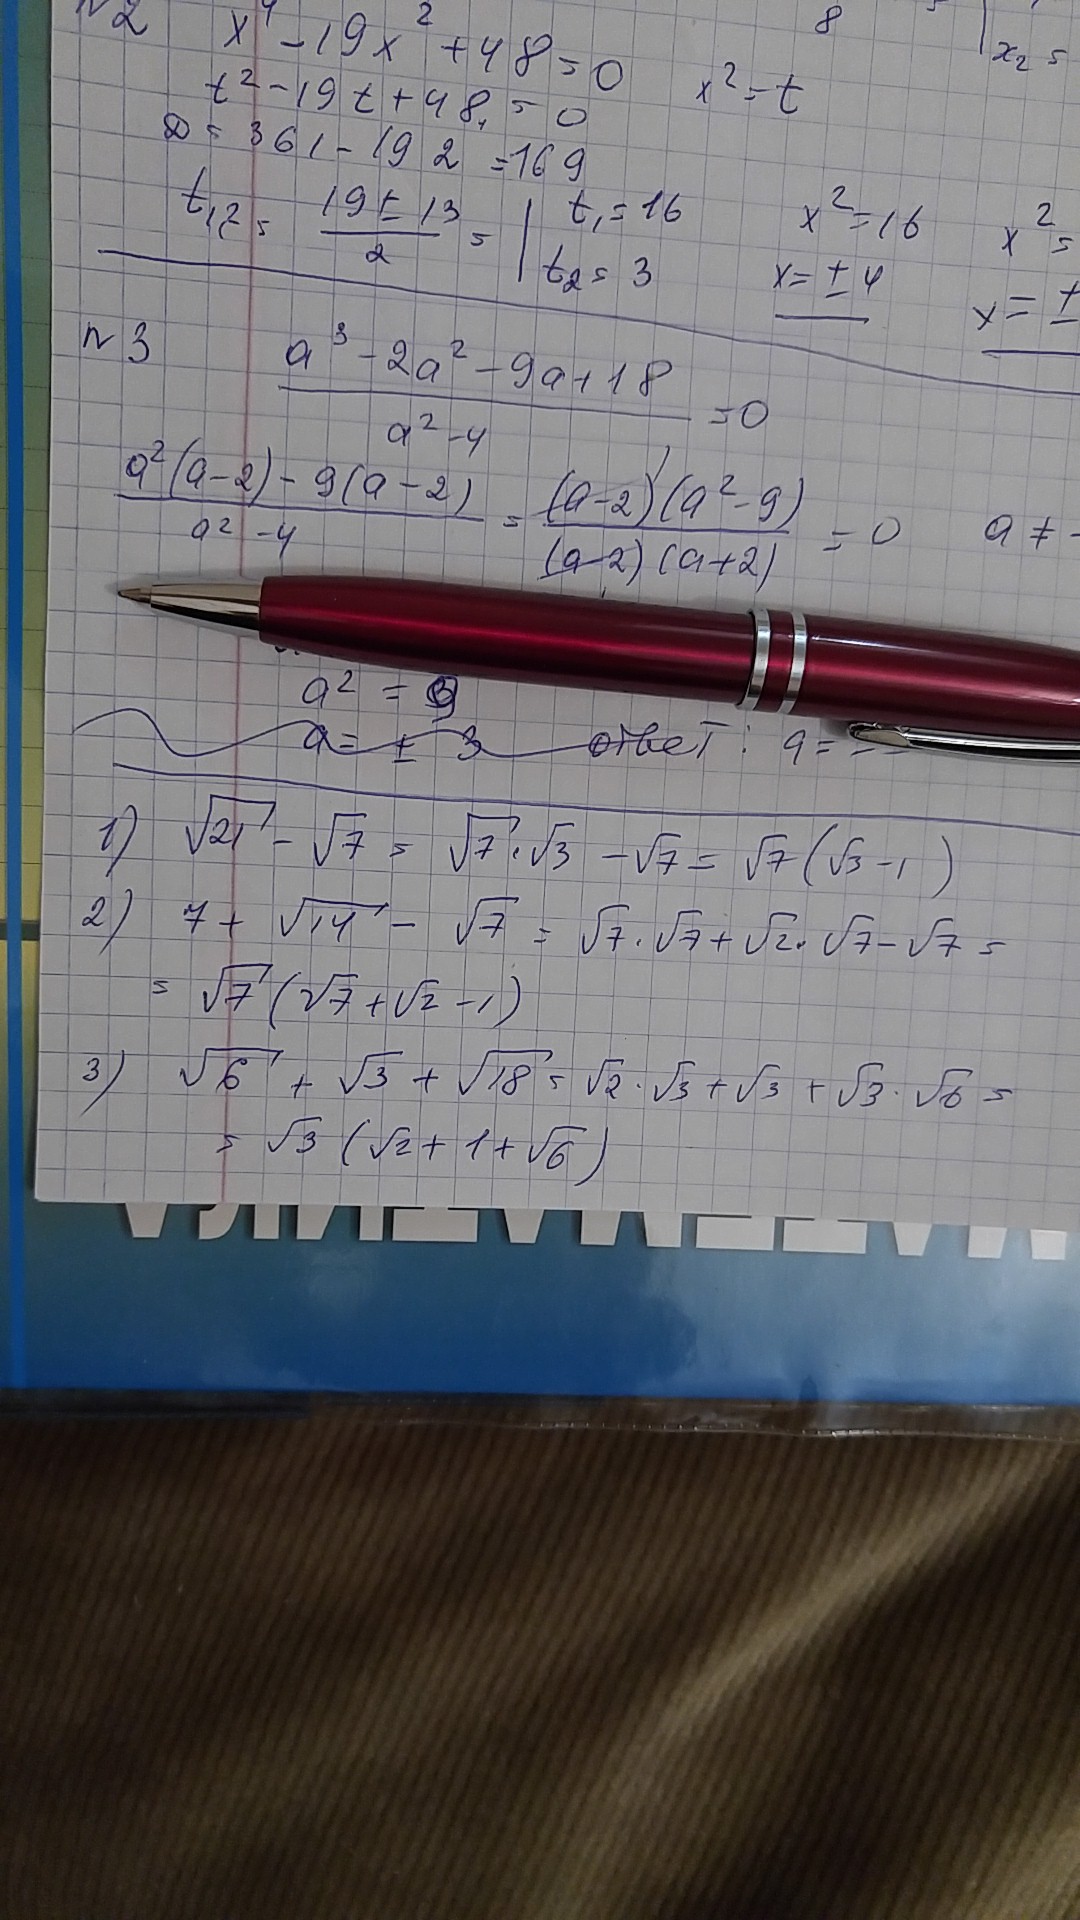 n2 x⁴ - 19x² + 48 = 0
8
x₂ =
t² - 19t + 48 = 0 x² = t
D = 361 - 192 = 169
t₁,₂ = (19 ± 13)/2 = | t₁ = 16 x² = 16 x² =
t₂ = 3 x = ± 4 x = ±
n3 (a³ - 2a² - 9a + 18)/(a² - 4) = 0
(a²(a-2) - 9(a-2))/(a² - 4) = ((a-2)(a² - 9))/((a-2)(a+2)) = 0 a ≠ -
a² = 9
a = ± 3 ответ: a =
1) √21 - √7 = √7 · √3 - √7 = √7(√3 - 1)
2) 7 + √14 - √7 = √7 · √7 + √2 · √7 - √7 =
= √7(√7 + √2 - 1)
3) √6 + √3 + √18 = √2 · √3 + √3 + √3 · √6 =
= √3(√2 + 1 + √6)